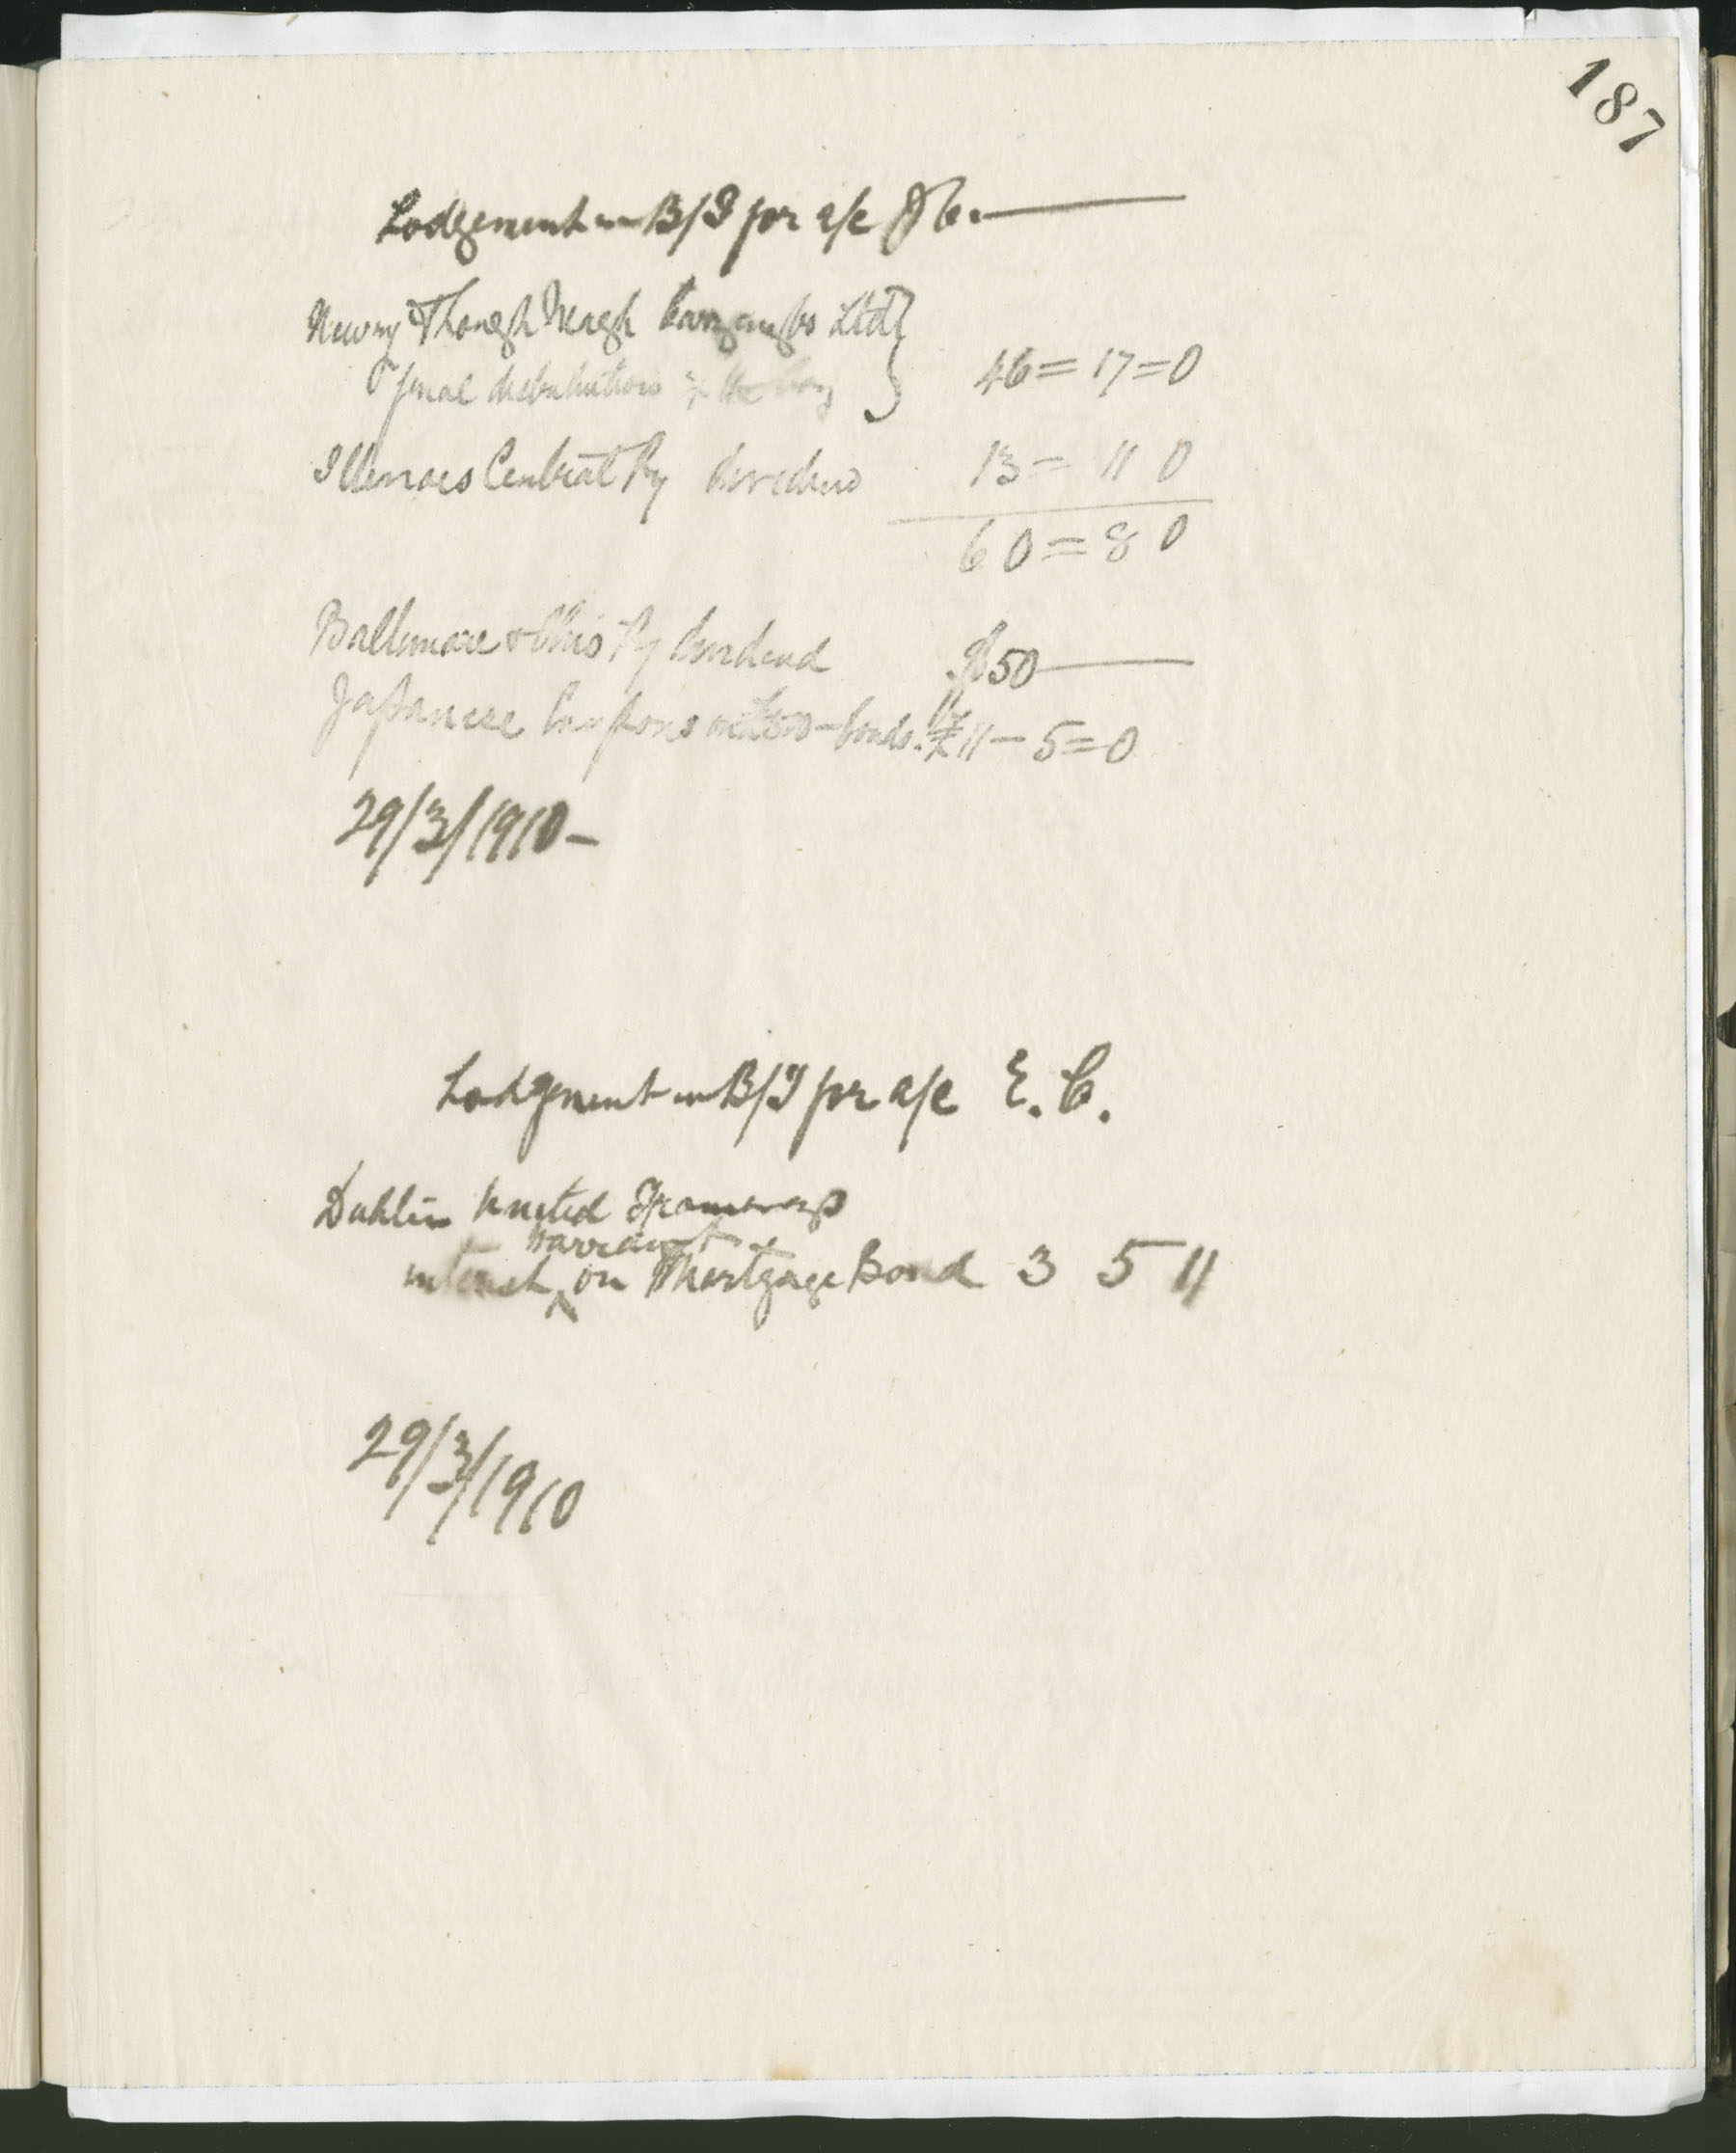 187
Lodgement in B/I for a/c JC.
Newry & Lough Neagh Carrying Co Ltd
final distribution 46=17=0
Illinois Central Ry dividend 13= 11 0
60=8 0
Baltimore & Ohio Ry dividend $50
Japanese Coupons on £500-bonds. £11-5=0
29/3/1910-
Lodgment in B/I for a/c E. C.
Dublin United Tramways
warrant
interest ^ on Mortgage Bond 3 5 11
29/3/1910